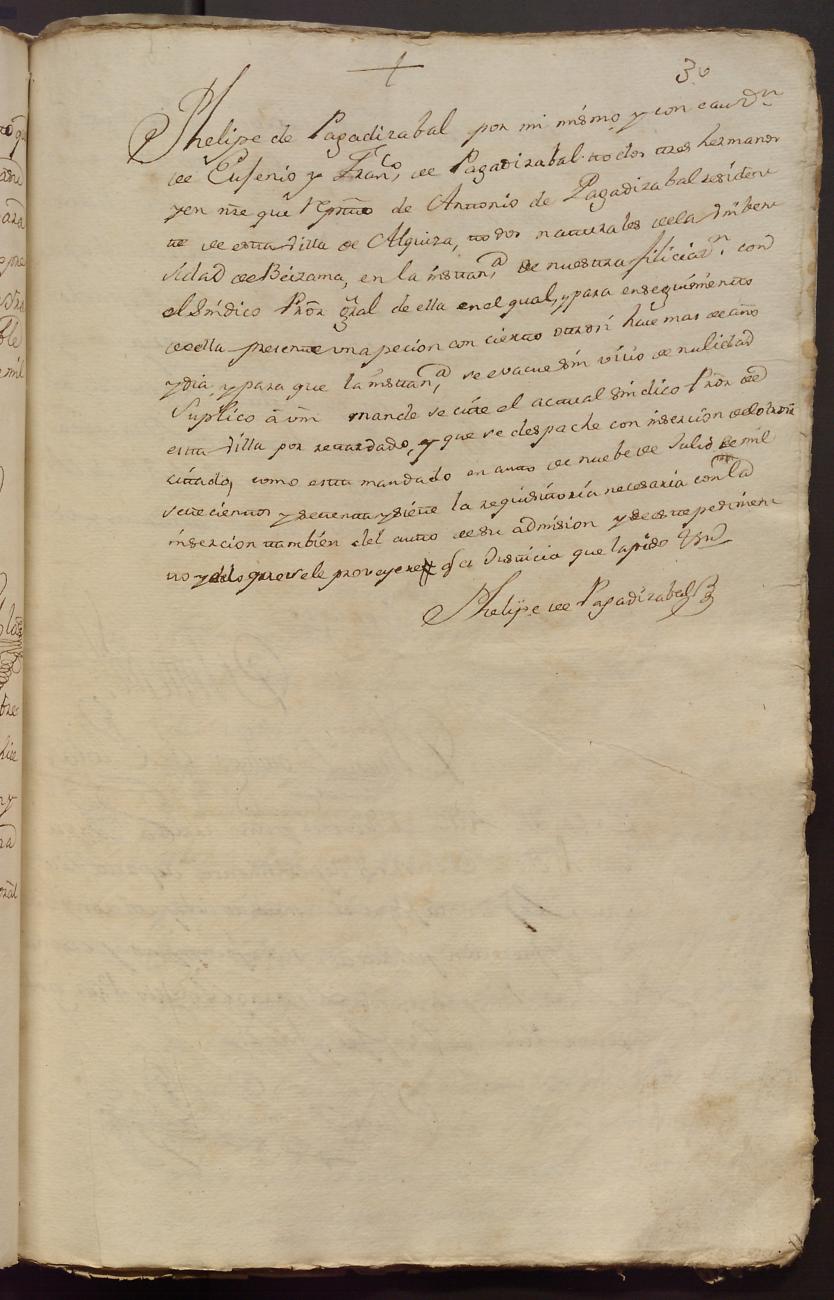 +
30
Phelipe de Pagadizabal por mi mismo y con cauz.on
de Eusenio y Fran.co de Pagadizabal todos tres hermanos
y en nre que de Antonio de Pagadizabal residen
te de esta Villa de Alquiza, todos naturales de la Uniber
sidad de Beizama, en la instan.a de nuestra filiciaz.n con
el Sindico Pror gral de ella en el qual, y para enseguimento
de ella presente una peticion con cierto otrosi haze mas de año
y dia y para que la instan.a se evacue sin vicio de nulidad
Suplico â vm mande se cite el actual sindico Pror de
esta Villa por retardado, y que se despache con insercion del otrosi
citado, como esta mandado en auto de nuebe de Julio de mil
setecientos y setenta y siete la requisitoria necesaria con la
insercion tambien del auto de su admision y de este pedimen
to y de lo que se le proveyere Justicia que la pido
Phelipe de Pagadizabal